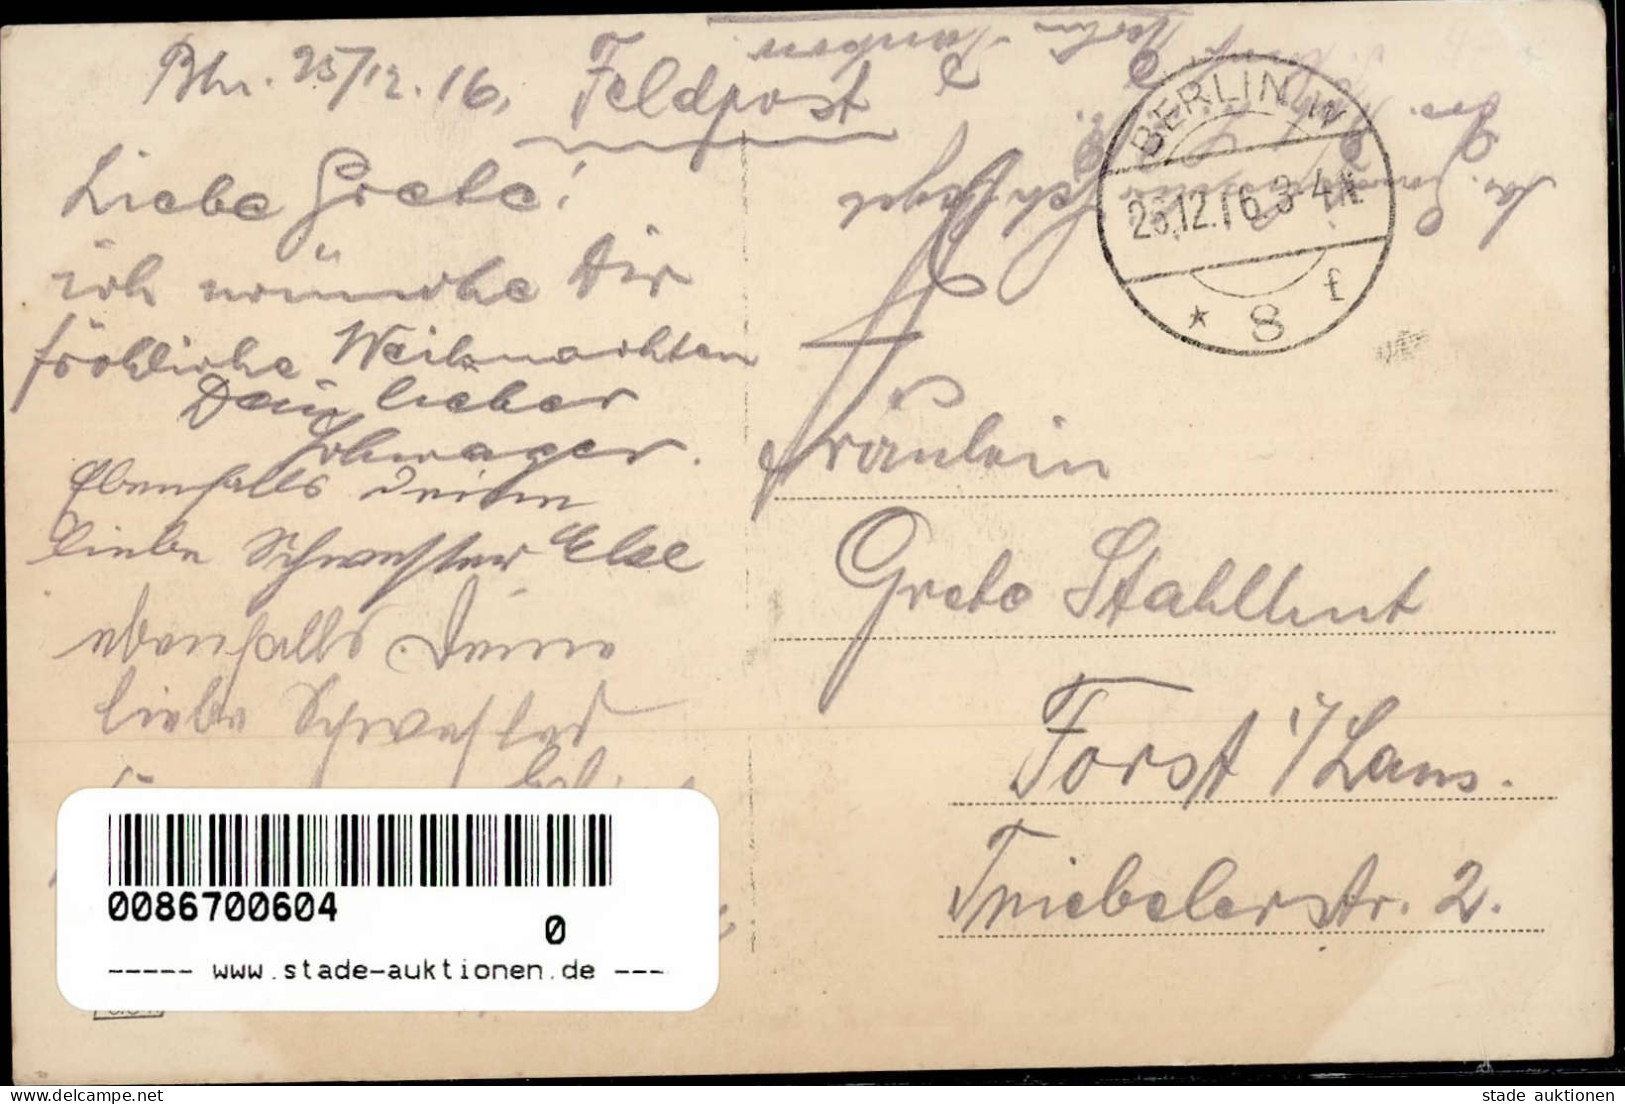 Bln. 25/12.16.
Feldpost
Liebe Grete!
ich wünsche Dir
fröhliche Weihnachten
Dein lieber
Schwager.
Ebenfalls deine
liebe Schwester Else
ebenfalls Deine
liebe Schwester
BERLIN W
25.12.16.3-4N
* 8 f
Fräulein
Grete Stahlhut
Forst i/Laus.
Triebelerstr. 2.
0086700604
0
----- www.stade-auktionen.de ---
delcampe.net
stade auktionen